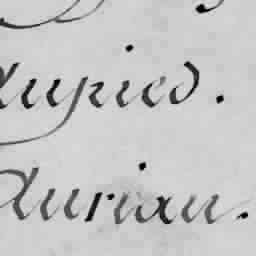 dupied.
durian.